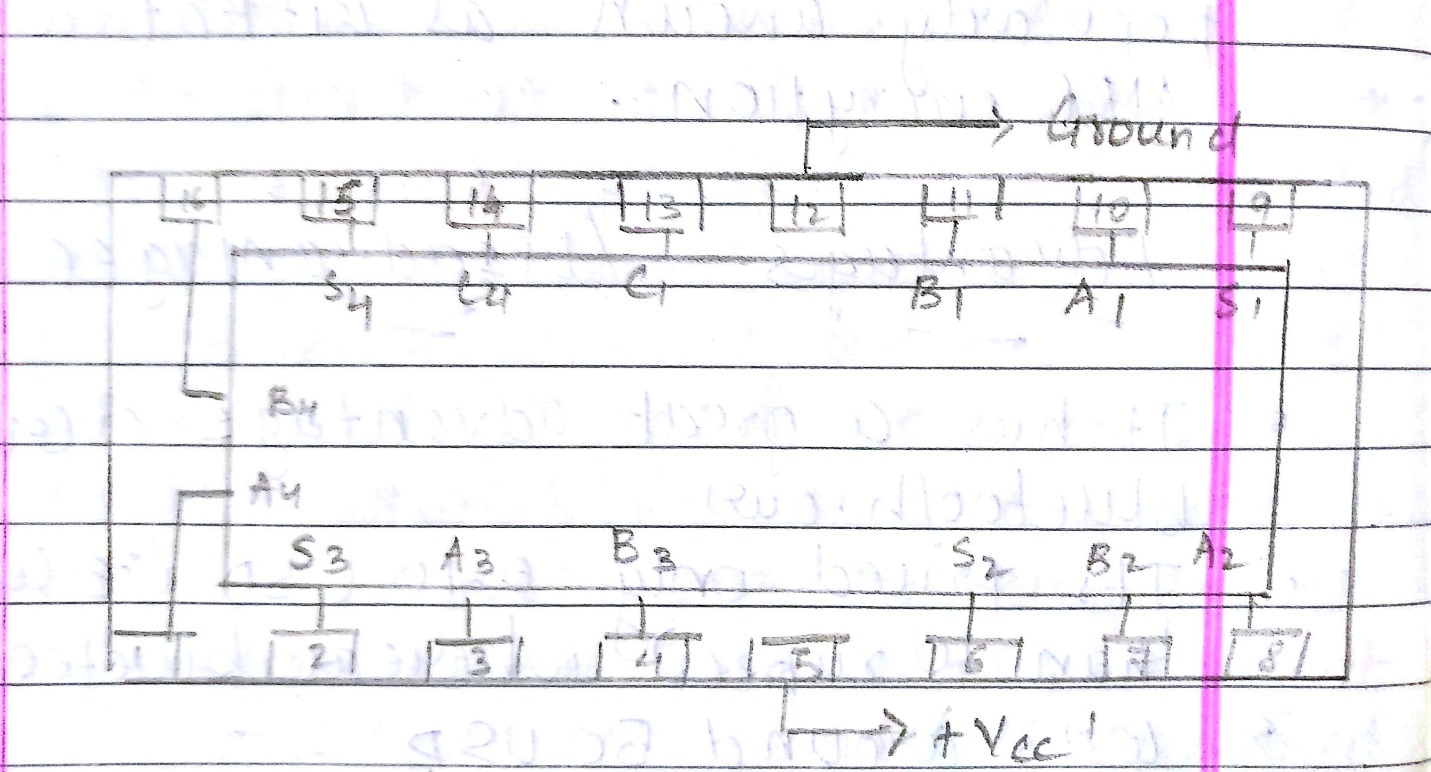 Ground
16 15 14 13 12 11 10 9
S4 C4 C1 B1 A1 S1
B4
A4
S3 A3 B3 S2 B2 A2
1 2 3 4 5 6 7 8
+Vcc